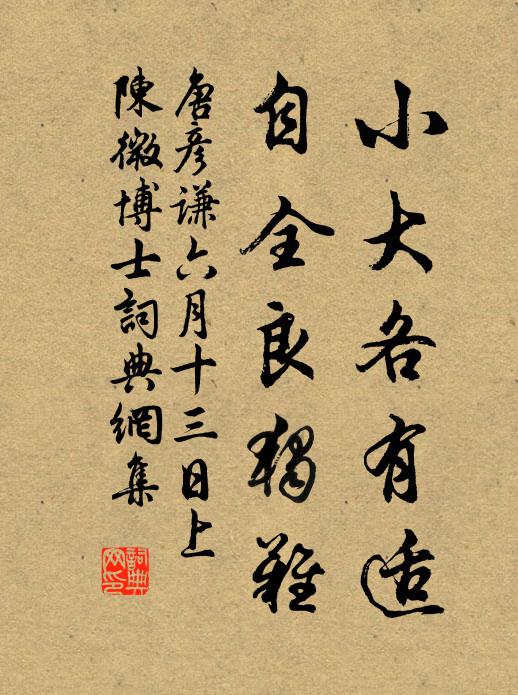 小大各有适
自全良獨難
唐彥謙六月十三日上
陳微博士詞典網集
詞典
网印